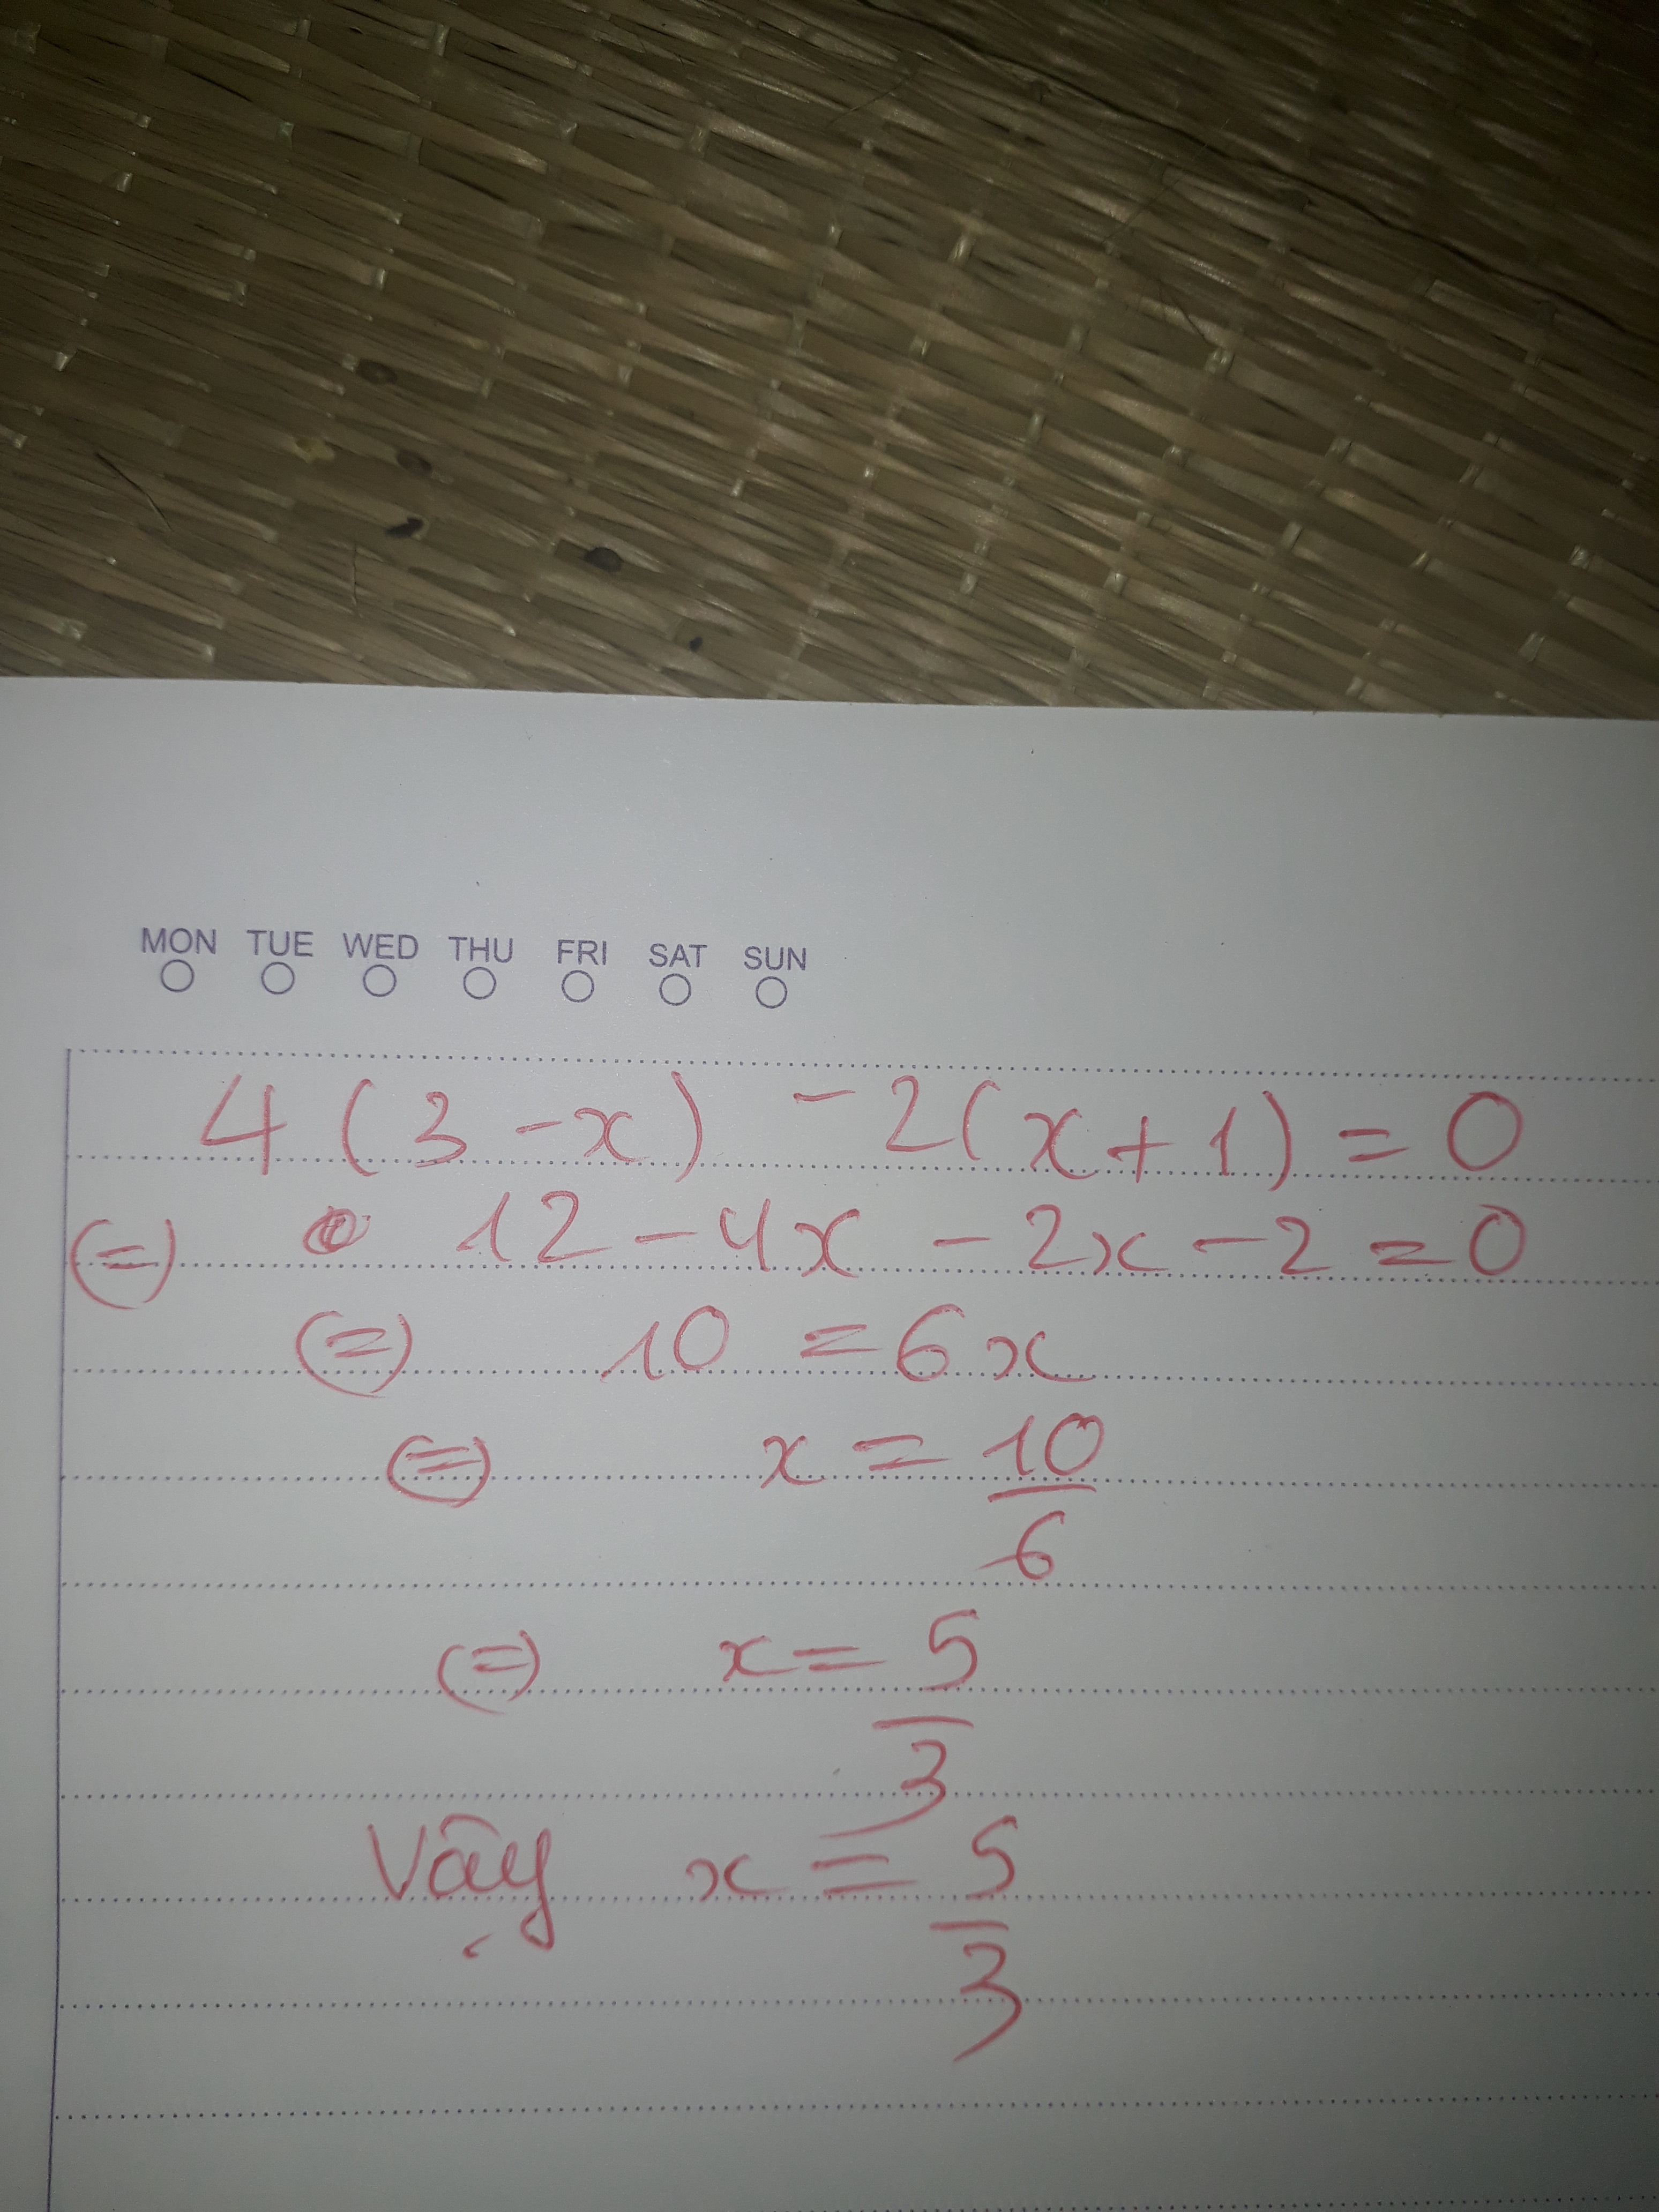 MON TUE WED THU FRI SAT SUN
4(3-x) -2(x+1)=0
(=) 12-4x-2x-2=0
(=) 10=6x
(=) x=10/6
(=) x=5/3
Vậy x=5/3